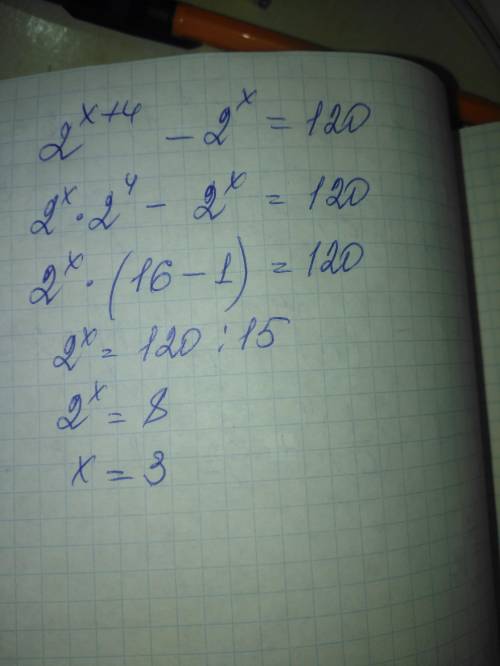 2^{x+4} - 2^x = 120
2^x · 2^4 - 2^x = 120
2^x · (16 - 1) = 120
2^x = 120 : 15
2^x = 8
x = 3